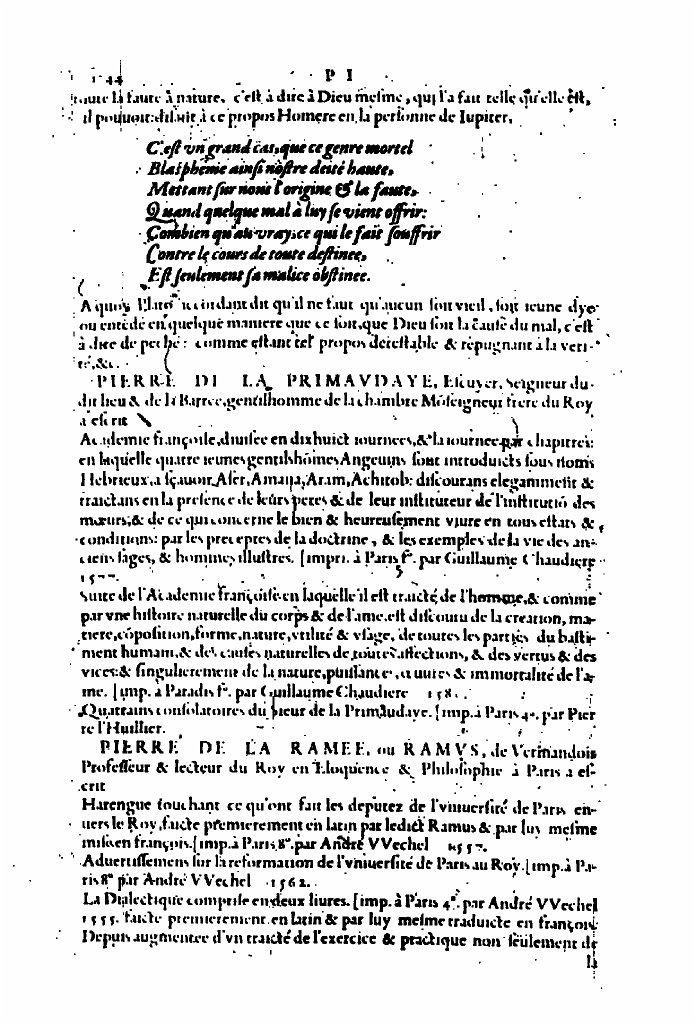 P I
toute la faute à nature, c'est à dire à Dieu mesme, qui l'a fait telle qu'elle est,
il pouuoit: disoit à ce propos Homere en la personne de Iupiter,
C'est vn grand cas, que ce genre mortel
Blasphéme ainsi nostre deité haute,
Mettant sur nous l'origine & la faute,
Quand quelque mal à luy se vient offrir:
Combien qu'au vray, ce qui le fait souffrir
Contre le cours de toute destinee,
Est seulement sa malice obstinee.
A quoy Platō accordant dit qu'il ne faut qu'aucun soit vieil, soit ieune dye
ou entēde en quelque maniere que ce soit, que Dieu soit la cause du mal, c'est
à dire de peché: comme estant tel propos detestable & repugnant à la veri-
té, &c.
PIERRE DE LA PRIMAVDAYE, Escuyer, Seigneur du-
dit lieu & de la Barree, gentilhomme de la chambre Mōseigneur frere du Roy
a escrit
Academie françoise, diuisee en dixhuict iournees, & la iournee par chapitres:
en laquelle quatre ieunes gentilshōmes Angeuins sont introduicts sous noms
Hebrieux, a sçauoir, Aser, Amana, Aram, Achitob: discourans elegamment &
traictans en la presence de leurs peres & de leur instituteur de l'institutiō des
mœurs, & de ce qui concerne le bien & heureusement viure en tous estats &
conditions: par les preceptes de la doctrine, & les exemples de la vie des an-
ciens sages, & hommes illustres. [impri. à Paris f°. par Guillaume Chaudiere
1577.
Suite de l'Academie françoise en laquelle il est traicté de l'homme, & comme
par vne histoire naturelle du corps & de l'ame est discouru de la creation, ma-
tiere, cōposition, forme, nature, vtilité & vsage, de toutes les parties du basti-
ment humain, & des causes naturelles de toutes affections, & des vertus & des
vices: & singulierement de la nature, puissance, œuures & immortalité de l'a-
me. [imp. à Paradis f°. par Guillaume Chaudiere 158.
Quatrains consolatoires du sieur de la Primaudaye. [imp. à Paris 4°. par Pier
re l'Huillier.
PIERRE DE LA RAMEE, ou RAMVS, de Vermandois
Professeur & lecteur du Roy en Eloquence & Philosophie à Paris a es-
crit
Harengue touchant ce qu'ont fait les deputez de l'vniuersité de Paris en-
uers le Roy, faicte premierement en latin par ledict Ramus & par luy mesme
mise en françois. [imp. à Paris 8°. par André VVechel 1557.
Aduertissemens sur la reformation de l'vniuersité de Paris au Roy. [imp. à Pa-
ris 8° par André VVechel 1562.
La Dialectique comprise en deux liures. [imp. à Paris 4°. par André VVechel
1555. faicte premierement en latin & par luy mesme traduicte en françois.
Depuis augmentee d'vn traicté de l'exercice & practique non seulement de
la